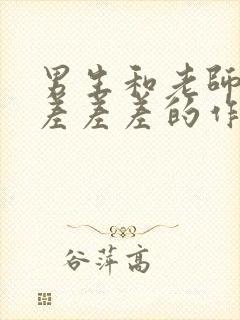 男生和老師
差差差的作
谷萍高